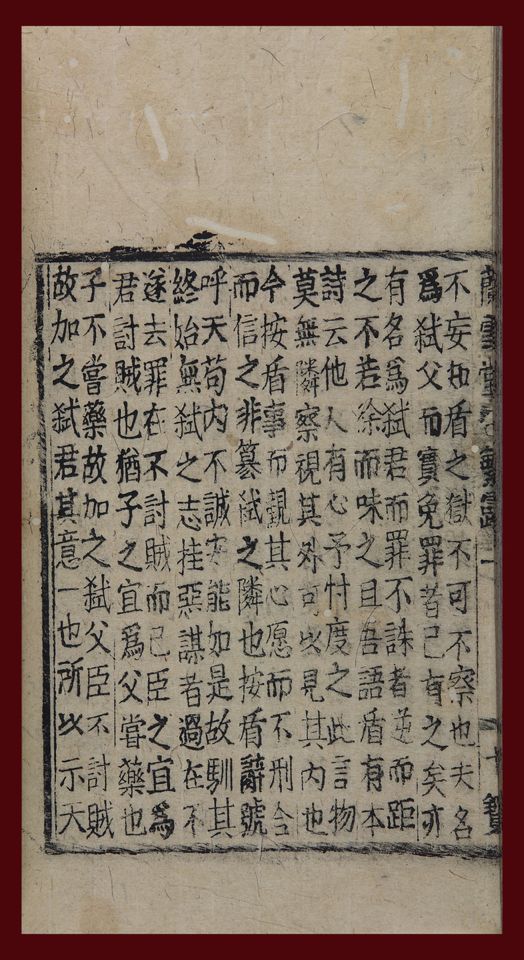 不妄知盾之獄不可不察也夫名
爲弑父而實免罪者已有之矣亦
有名爲弑君而罪不誅者逆而距
之不若徐而味之且吾語盾有本
詩云他人有心予忖度之此言物
莫無隣察視其外可以見其內也
今按盾事而觀其心愿而不刑合
而信之非篡弑之隣也按盾辭號
呼天苟內不誠安能如是故馴其
終始無弑之志挂惡謀者過在不
遂去罪在不討賊而已臣之宜爲
君討賊也猶子之宜爲父嘗藥也
子不嘗藥故加之弑父臣不討賊
故加之弑君其意一也所以示天